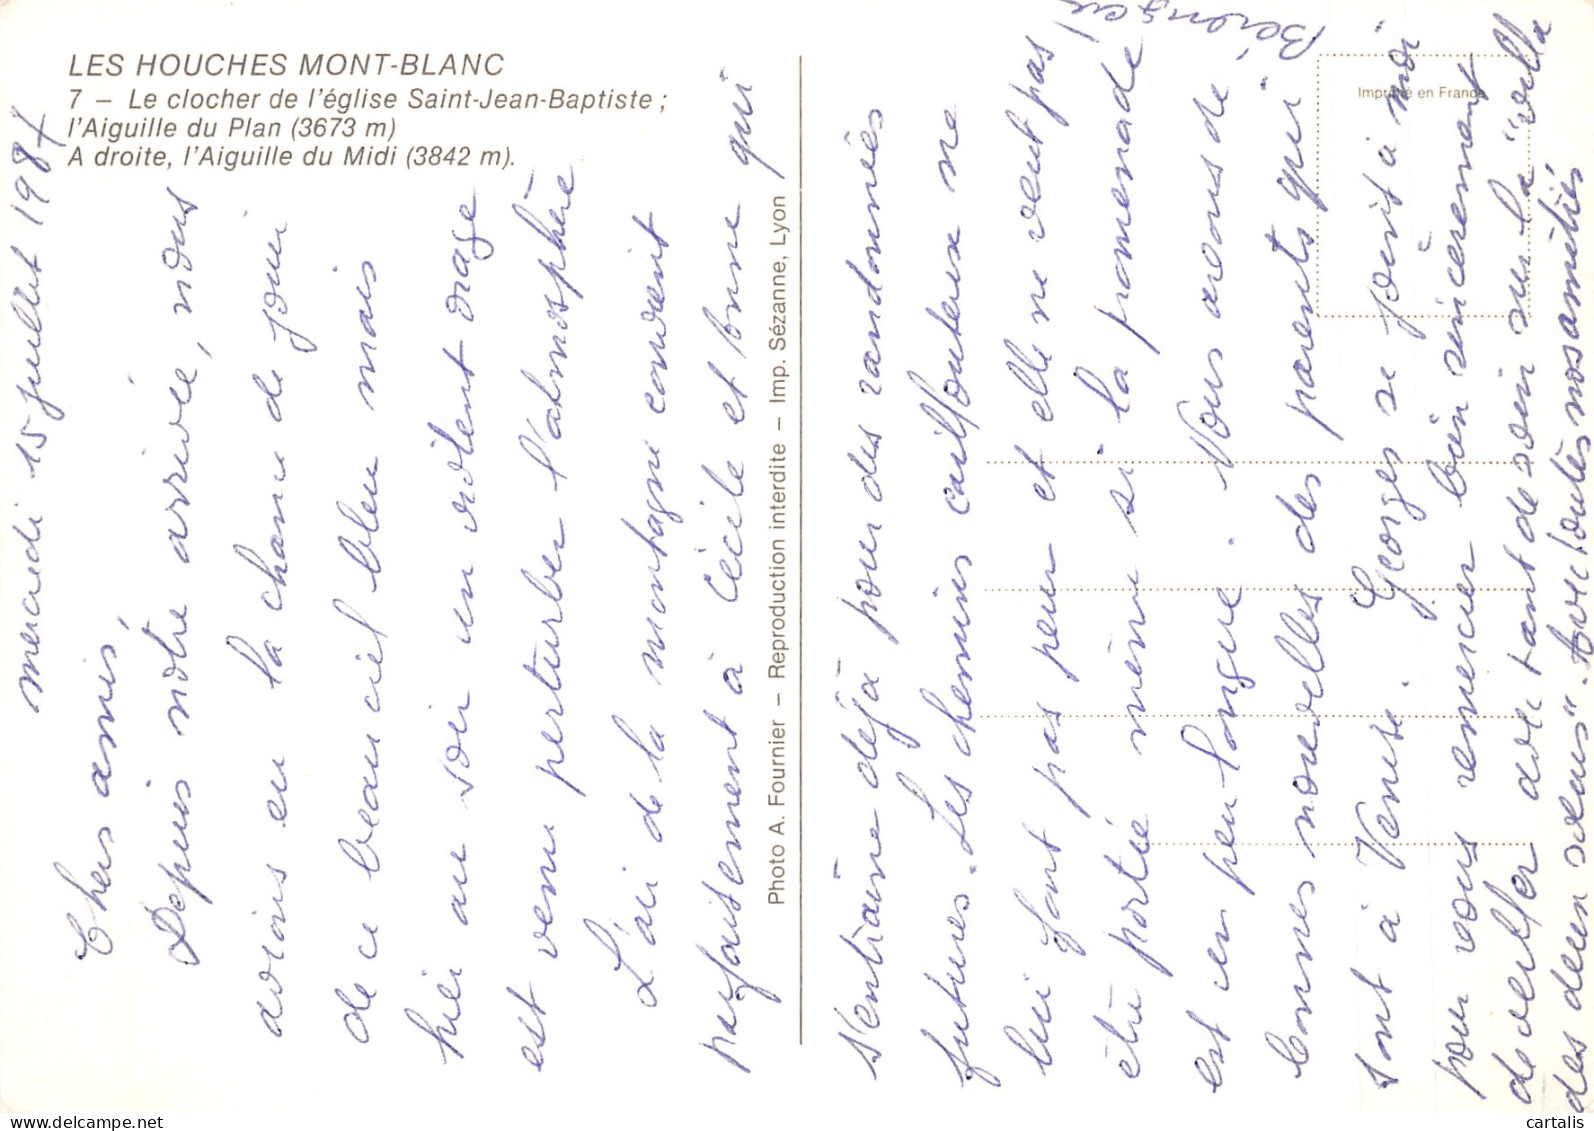 LES HOUCHES MONT-BLANC
7 – Le clocher de l'église Saint-Jean-Baptiste ;
l'Aiguille du Plan (3673 m)
A droite, l'Aiguille du Midi (3842 m).
mercredi 15 juillet 1987
Chers amis,
Depuis notre arrivée, nous
avions eu la chance de jouir
de ce beau ciel bleu mais
hier au soir un violent orage
est venu perturber l'atmosphère
L'air de la montagne convient
parfaitement à Cécile et bonne qui
Photo A. Fournier – Reproduction interdite – Imp. Sézanne, Lyon
Imprimé en France
s'entraîne déjà pour des randonnées
futures. Les chemins caillouteux ne
lui font pas peur et elle ne veut pas
être portée même si la promenade
est un peu longue. Nous avons de
bonnes nouvelles des parents qui
sont à Venise. Georges se joint à moi
pour vous remercier bien sincèrement
de veiller avec tant de soin sur la "villa
des deux" . Avec toutes nos amitiés